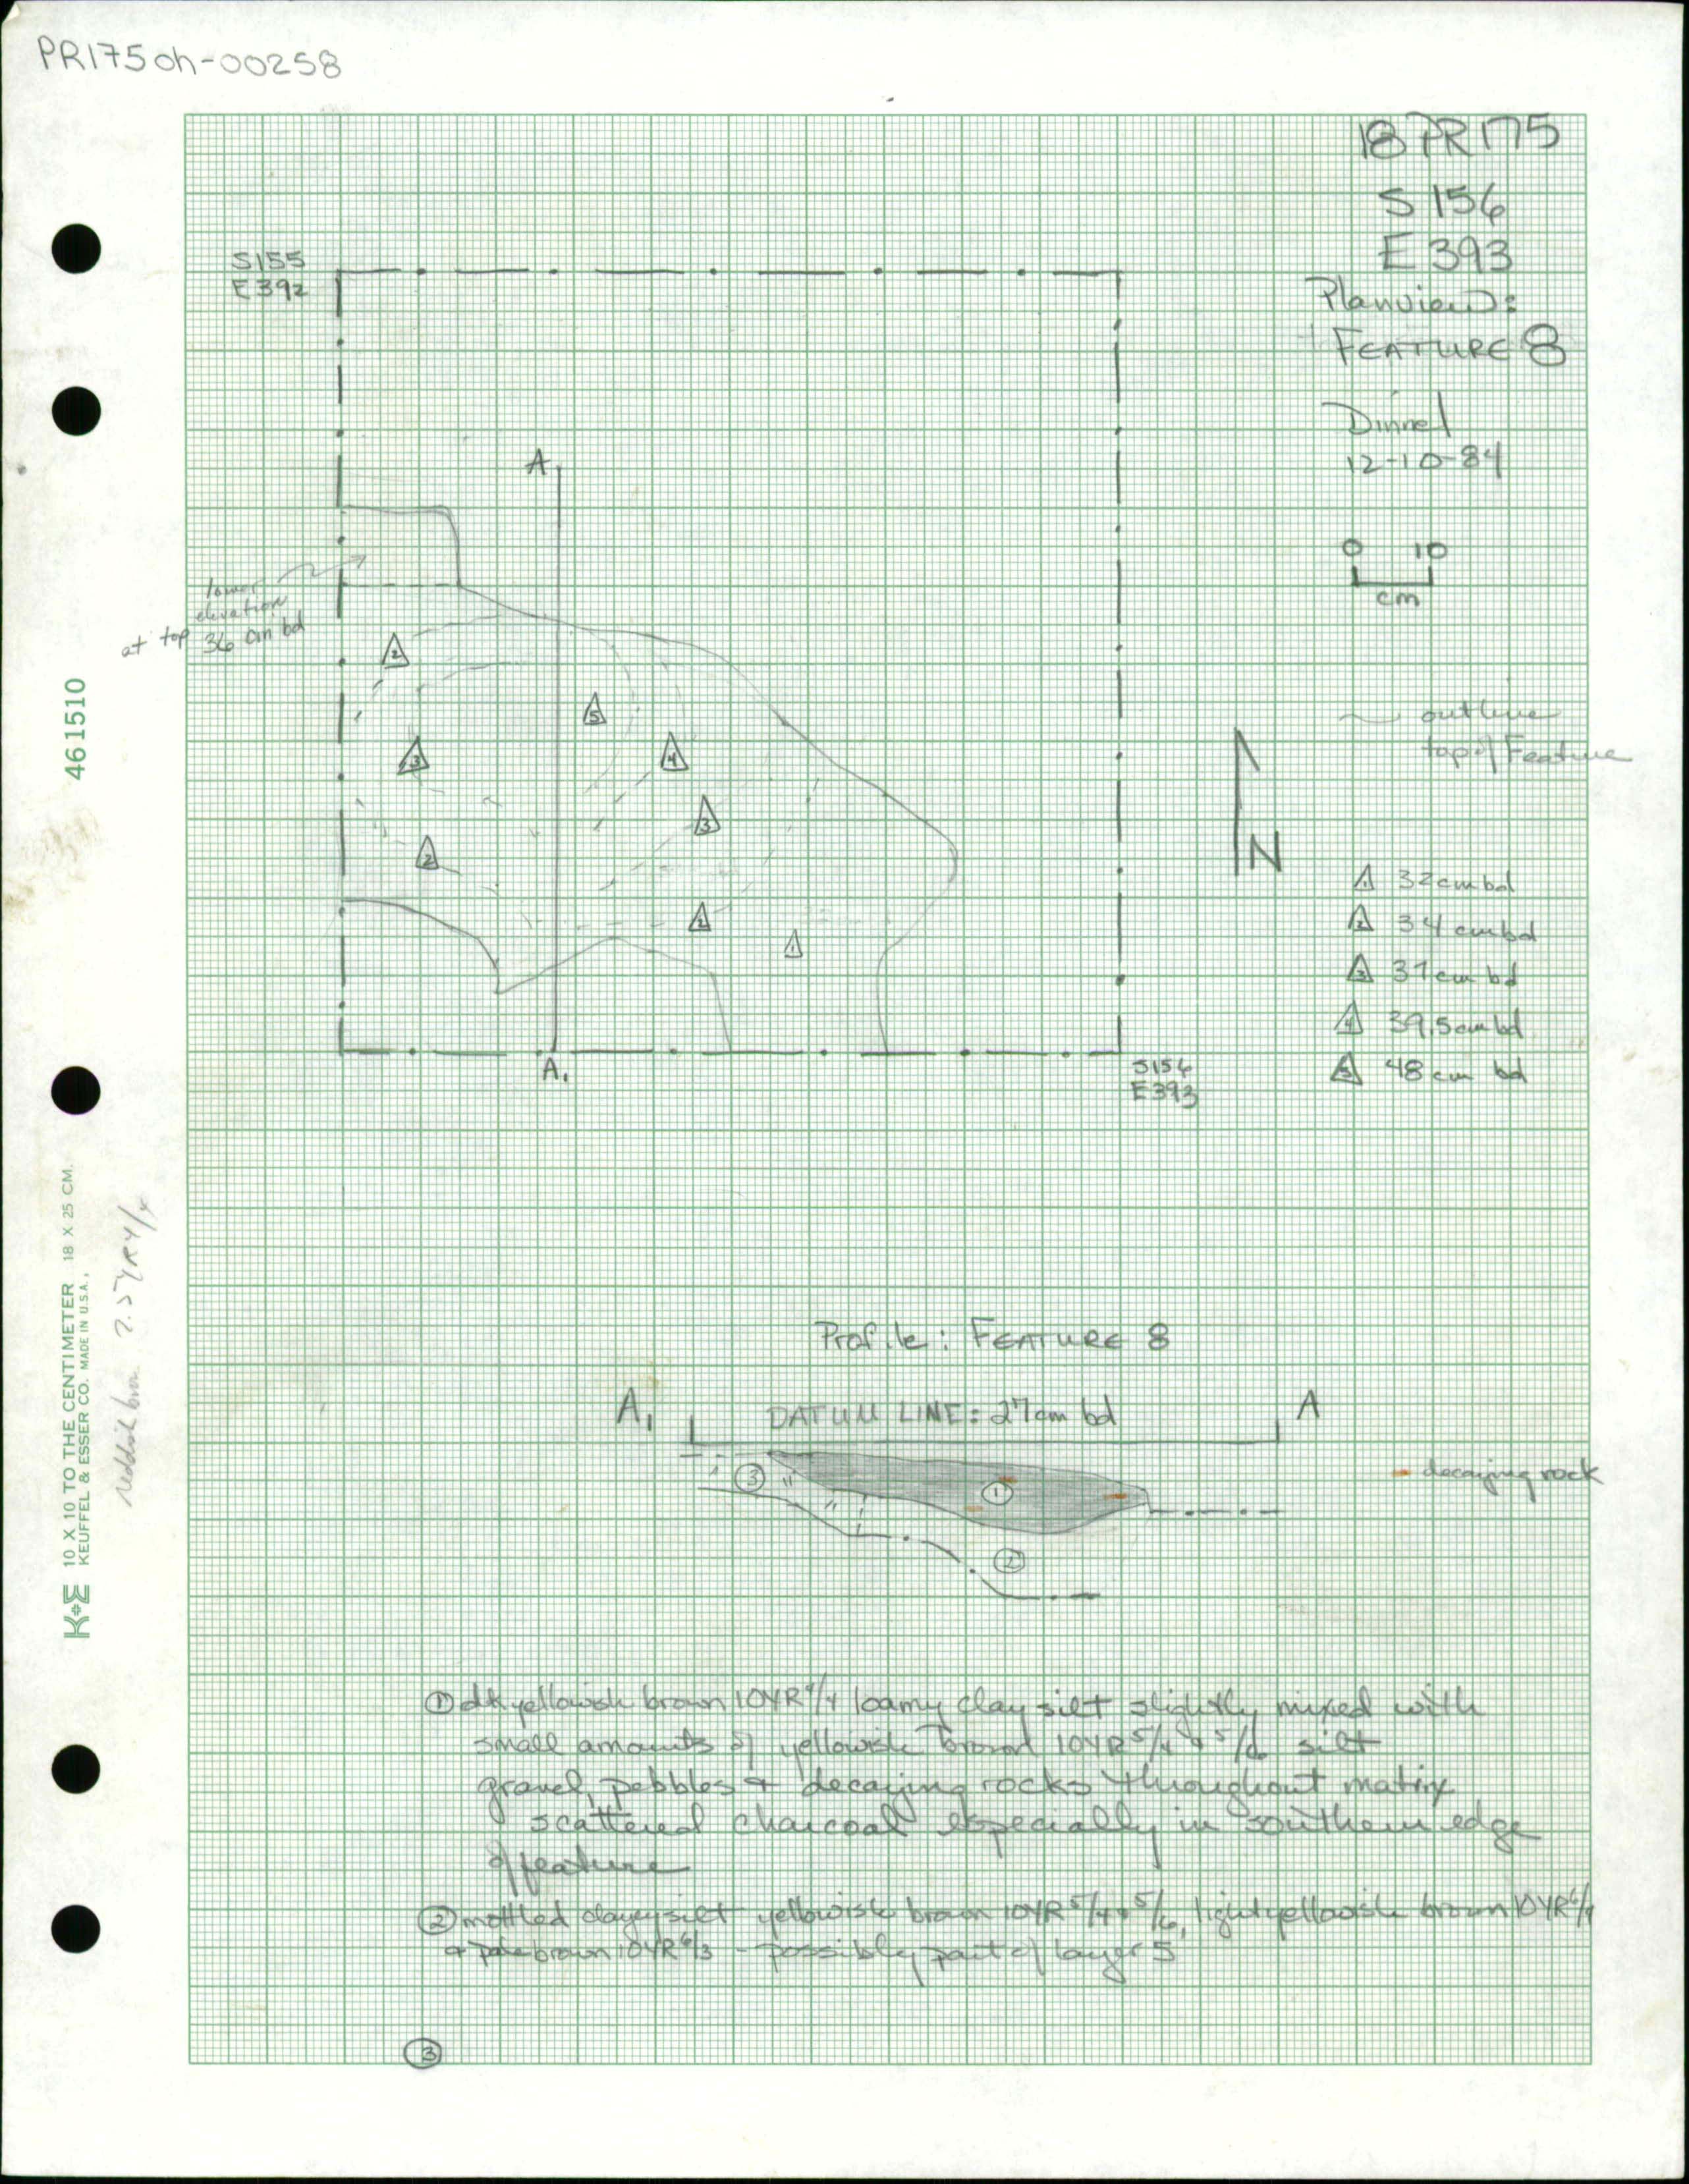 PR175oh-00258
18PR175
S 156
E 393
Planview:
FEATURE 8
Dinnel
12-10-84
0 10
cm
S155
E392
A
lower
elevation
at top 36 cm bd
2
5
3
4
3
2
2
1
outline
top of Feature
N
1 32cmbd
2 34 cmbd
3 37cm bd
4 39.5cmbd
5 48cm bd
A1
S156
E393
461510
K+E 10 X 10 TO THE CENTIMETER 18 X 25 CM.
KEUFFEL & ESSER CO. MADE IN U.S.A.
reddish brn 2.5YR4/4
Profile: FEATURE 8
A1 DATUM LINE: 27cm bd A
3
1
2
decaying rock
① dk yellowish brown 10YR 4/4 loamy clay silt slightly mixed with
small amounts of yellowish brown 10YR 5/4 + 5/6 silt
gravel, pebbles + decaying rocks throughout matrix
scattered charcoal especially in southern edge
of feature
② mottled clayey silt yellowish brown 10YR 5/4 + 5/6, light yellowish brown 10YR 6/4
+ pale brown 10YR 6/3 - possibly part of layer 5
③